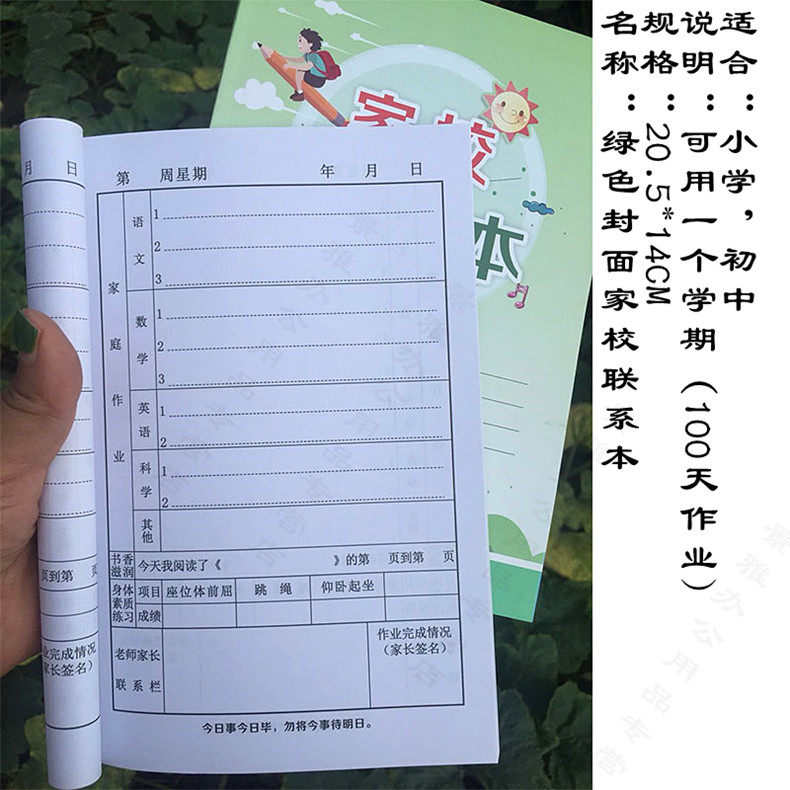 名称：绿色封面家校联系本
规格：20.5*14CM
说明：可用一个学期（100天作业）
适合：小学，初中
家校
本
月 日
页到第 页
业完成情况
家长签名）
第 周星期 年 月 日
家庭作业
语文
1
2
3
数学
1
2
3
英语
1
2
科学
1
2
其他
书香滋润 今天我阅读了《 》的第 页到第 页
身体素质练习
项目 座位体前屈 跳绳 仰卧起坐
成绩
老师家长联系栏
作业完成情况
（家长签名）
今日事今日毕，勿将今事待明日。
景雅办公用品专营店
景雅办公用品专营